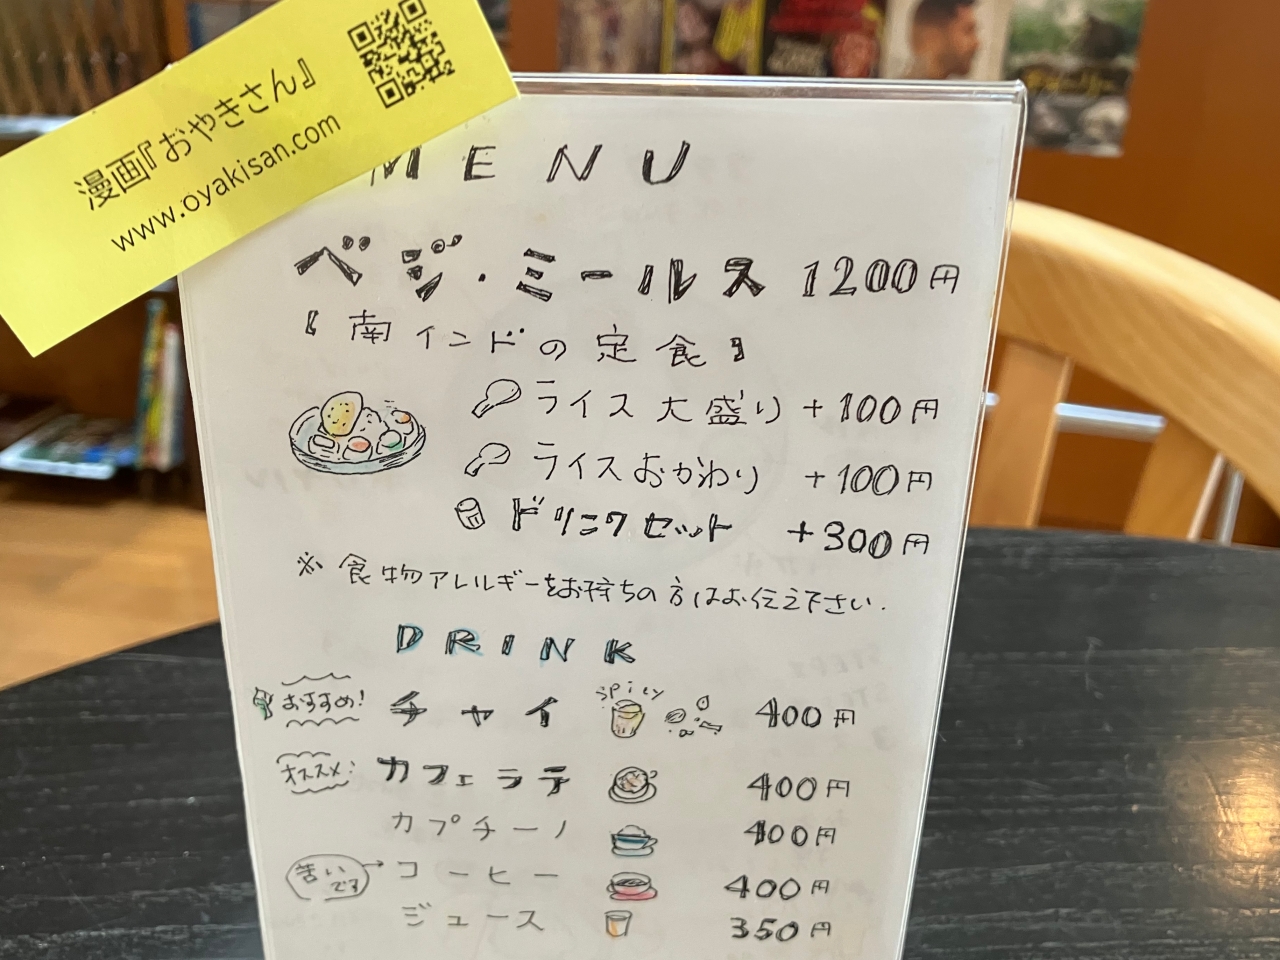 漫画『おやきさん』
www.oyakisan.com
MENU
ベジ・ミールス 1200円
『南インドの定食』
ライス大盛り +100円
ライスおかわり +100円
ドリンクセット +300円
※食物アレルギーをお持ちの方はお伝え下さい.
DRINK
おすすめ! チャイ spicy 400円
オススメ! カフェラテ 400円
カプチーノ 400円
苦いです→コーヒー 400円
ジュース 350円